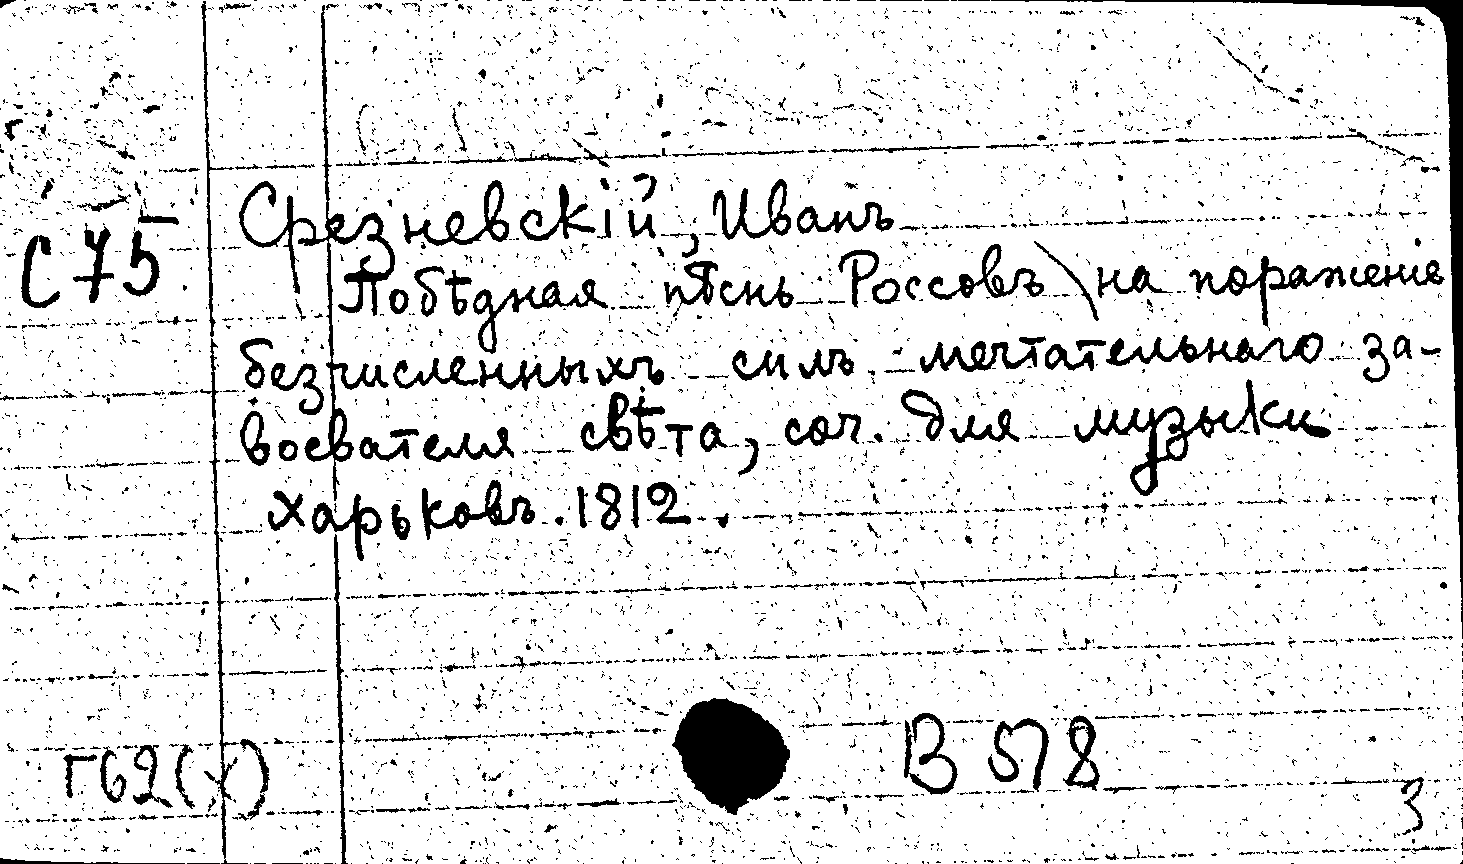 Срезневскій, Иванъ
С75
Побѣдная пѣснь Россовъ \ на пораженіе
безчисленныхъ силъ мечтательнаго за-
воевателя свѣта, соч. для музыки
Харьковъ. 1812.
Г62(х)
В 578
3